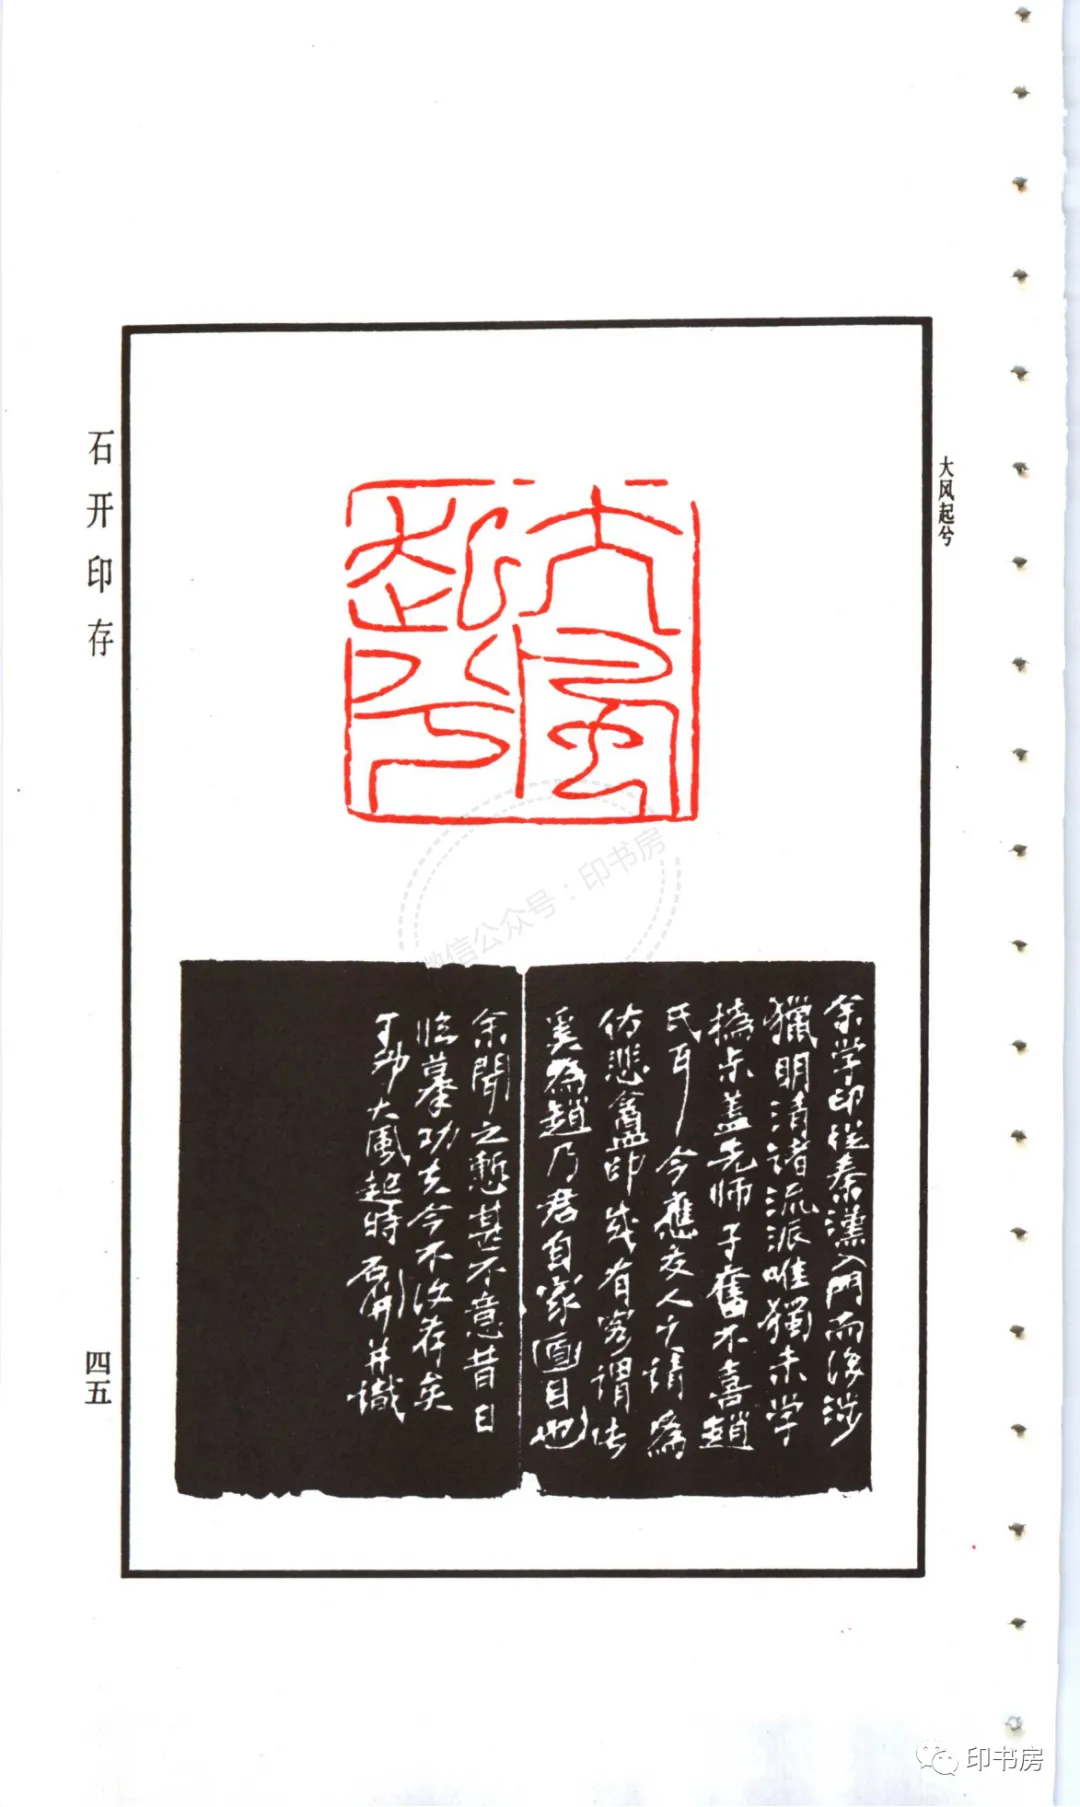 大风起兮
大風起兮
余学印從秦漢入門而後涉
獵明清諸流派唯獨未学
撝叔蓋先师子奮不喜趙
氏耳今應友人之請為
仿悲盦印成有客謂此
奚為趙乃君自家面目也
余聞之慙甚不意昔日
临摹功夫今不存矣
丁卯大風起時石开并識
石开印存
四五
微信公众号：印书房
印书房